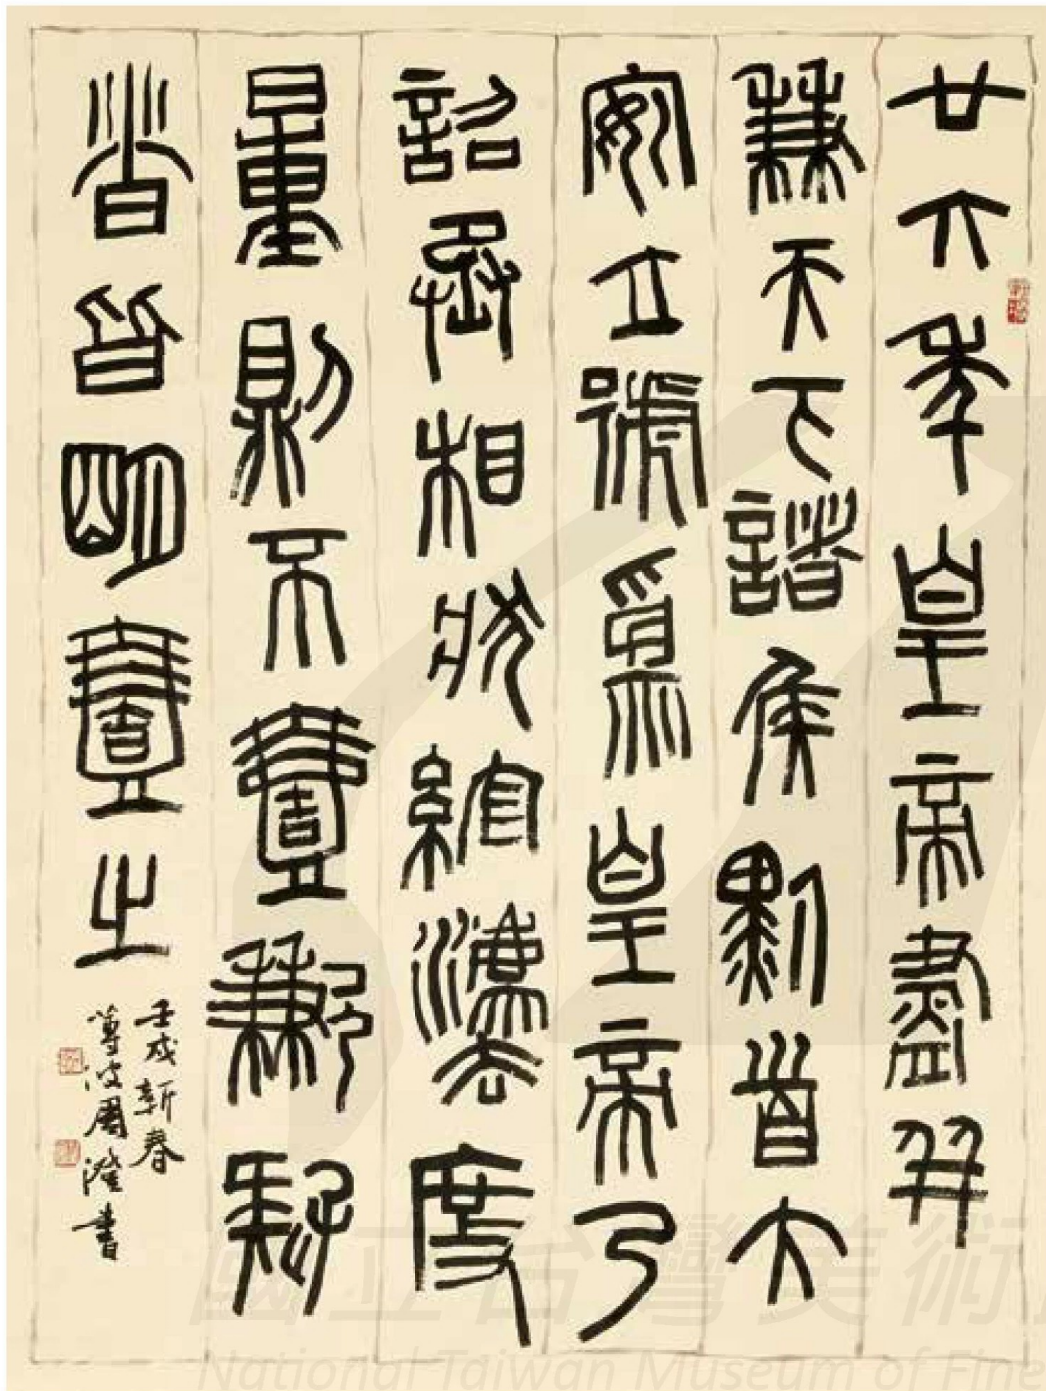 廿六年皇帝盡并
兼天下諸侯黔首大
安立號為皇帝乃
詔丞相狀綰灋度
量則不壹歉疑
者皆明壹之
壬戌新春
蓴波周澄書
國立台灣美術
National Taiwan Museum of Fine